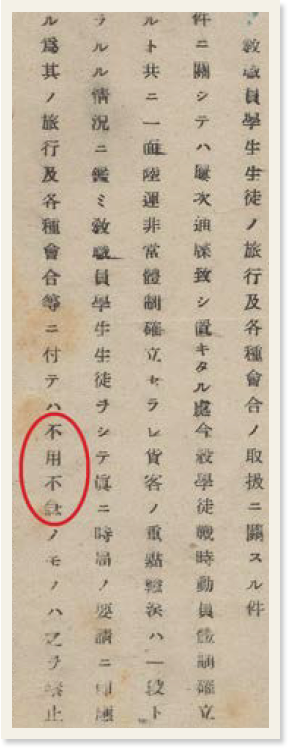 教職員學生生徒ノ旅行及各種會合ノ取扱ニ關スル件
件ニ關シテハ屡次通牒致シ置キタル處今般學徒戰時動員體制確立
ルト共ニ一面陸運非常體制確立セラレ貨客ノ重點輸送ハ一段ト
ラルル情況ニ鑑ミ敎職員學生生徒ヲシテ眞ニ時局ノ要請ニ即應
ル爲其ノ旅行及各種會合等ニ付テハ不用不急ノモノハ之ヲ禁止